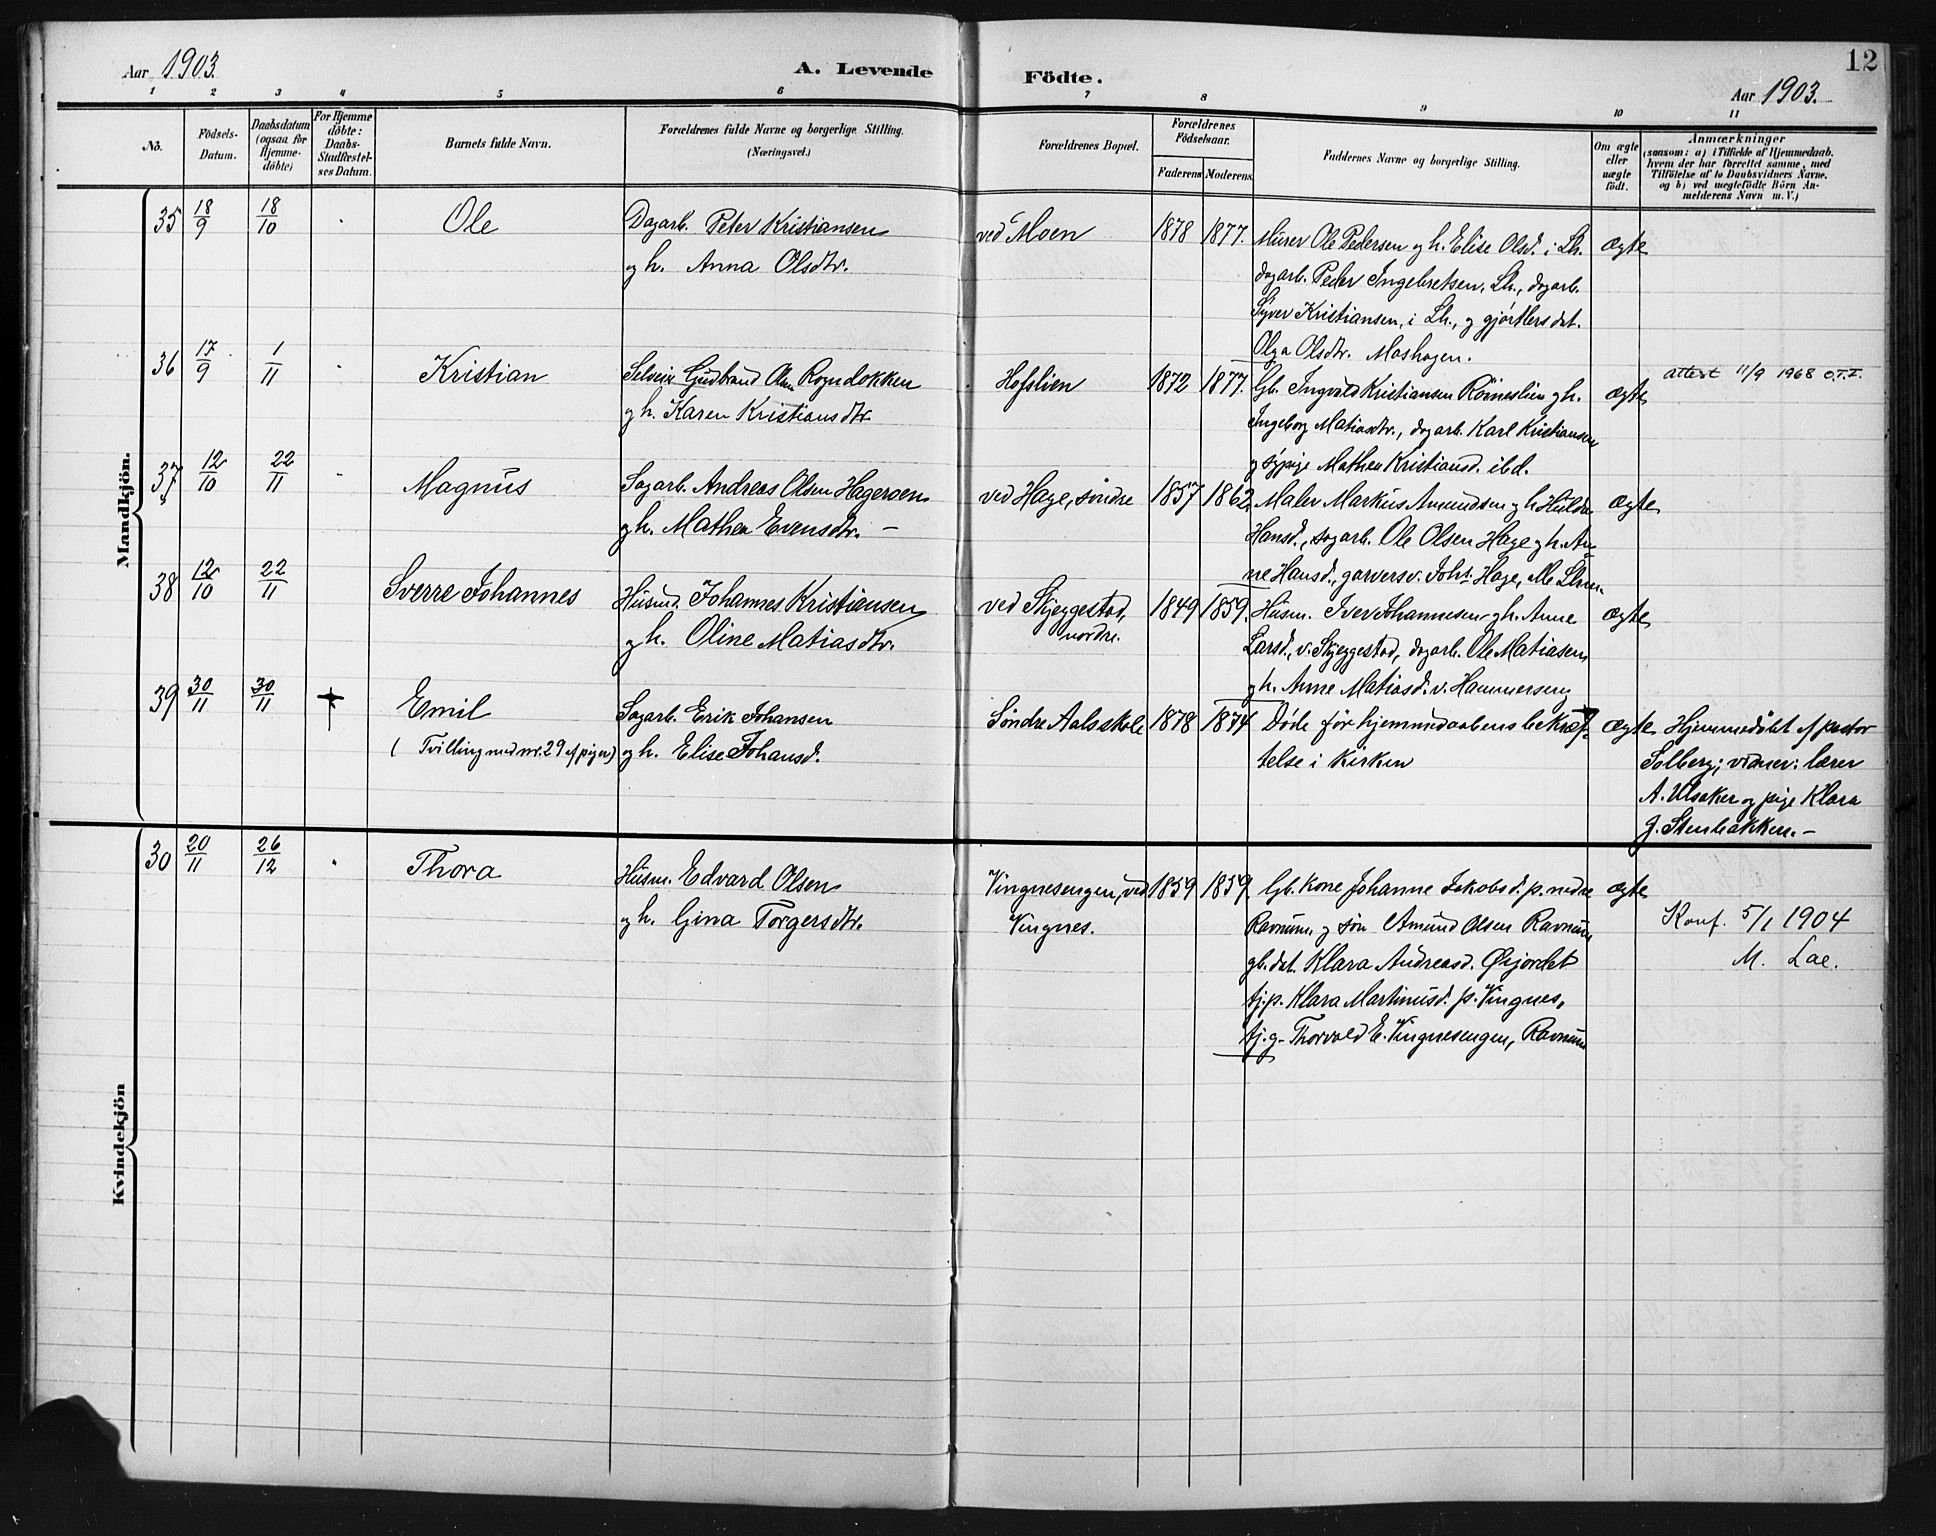 Aar 1903. A. Levende Födte. Aar 1903. 12
1 2 3 4 5 6 7 8 9 10 11
No. Födsels-Datum. Daabsdatum (ogsaa for Hjemmedöbte) For Hjemmedöbte: Daabs-Stadfæstelses Datum. Barnets fulde Navn. Forældrenes fulde Navne og borgerlige Stilling. (Næringsvei.) Forældrenes Bopæl. Forældrenes Födselsaar. Faderens Moderens. Faddernes Navne og borgerlige Stilling. Om ægte eller uægte födt. Anmærkninger (saasom: a) i Tilfælde af Hjemmedaab, hvem der har forrettet samme, med Tilföielse af to Daabsvidners Navne. og b) ved uægtefödte Börn Anmelderens Navn m. V.)
Mandkjön.
35 18/9 18/10 Ole Dagarb. Peter Kristiansen ved Moen 1878 1877. Murer Ole Pedersen og h. Elise Olsd. i Lh. ægte
og h. Anna Olsdtr. dagarb. Peder Ingebretsen, Lh., dagarb.
Syver Kristiansen, i Lh., og gjørtlersdat.
Olga Olsdtr. Moshagen.
36 17/9 1/11 Kristian Selveier Gudbrand Olsen Rogndokken Hofslien 1872 1877. Gb. Ingvald Kristiansen Röineslien og h. ægte attest 11/9 1968 O.T.F.
og h. Karen Kristiansdtr. Ingeborg Matiasdtr., dagarb. Karl Kristiansen
og sypige Mathea Kristiansd. ibd.
37 12/10 22/11 Magnus Sagarb. Andreas Olsen Hageroen ved Hage, søndre 1857 1862. Maler Markus Amundsen og h. Hulda ægte
og h. Mathea Evensdtr. Hansd., sagarb. Ole Olsen Hage og h. An-
ne Hansd., garversv. Johs. Hage,
38 12/10 22/11 Sverre Johannes Husmd. Johannes Kristiansen ved Skjeggestad, nordre. 1849 1859. Husm. Iver Johannesen og h. Anne ægte
og h. Oline Matiasdtr. Larsd., v. Skjeggestad, dagarb. Ole Matiasen
og h. Anne Matiasd. v. Hammerseng
39 30/11 30/11 Emil Sagarb. Erik Johansen Søndre Aalsskole 1878 1874 Døde før hjemmedaabens bekræf- ægte Hjemmedøbt af pastor
( Tvilling med nr. 29 af piger) og h. Elise Johansd. telse i kirken Solberg; vidner: lærer
A. Ulsaker og pige Klara
J. Stenbakken.-
Kvindekjön
30 20/11 26/12 Thora Husm. Edvard Olsen Vingnesengen, ved 1859 1859. Gb. kone Johanne Jakobsd. p. nedre ægte
og h. Gina Torgersdtr. Vingnes. Ravnum, og søn Amund Olsen Ravnum Konf. 5/1 1904
gb. dat. Klara Andreasd. Øijordet M. Lae.
tj. p. Klara Martinusd. p. Vingnes,
tj. g. Thorvald E. Vingnesengen, Ravnum